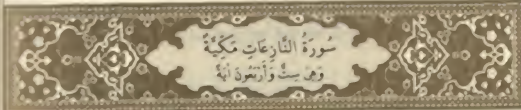 سُورَةُ النَّازِعَاتِ مَكِّيَّةٌ
وَهِيَ سِتٌّ وَأَرْبَعُونَ آيَةً